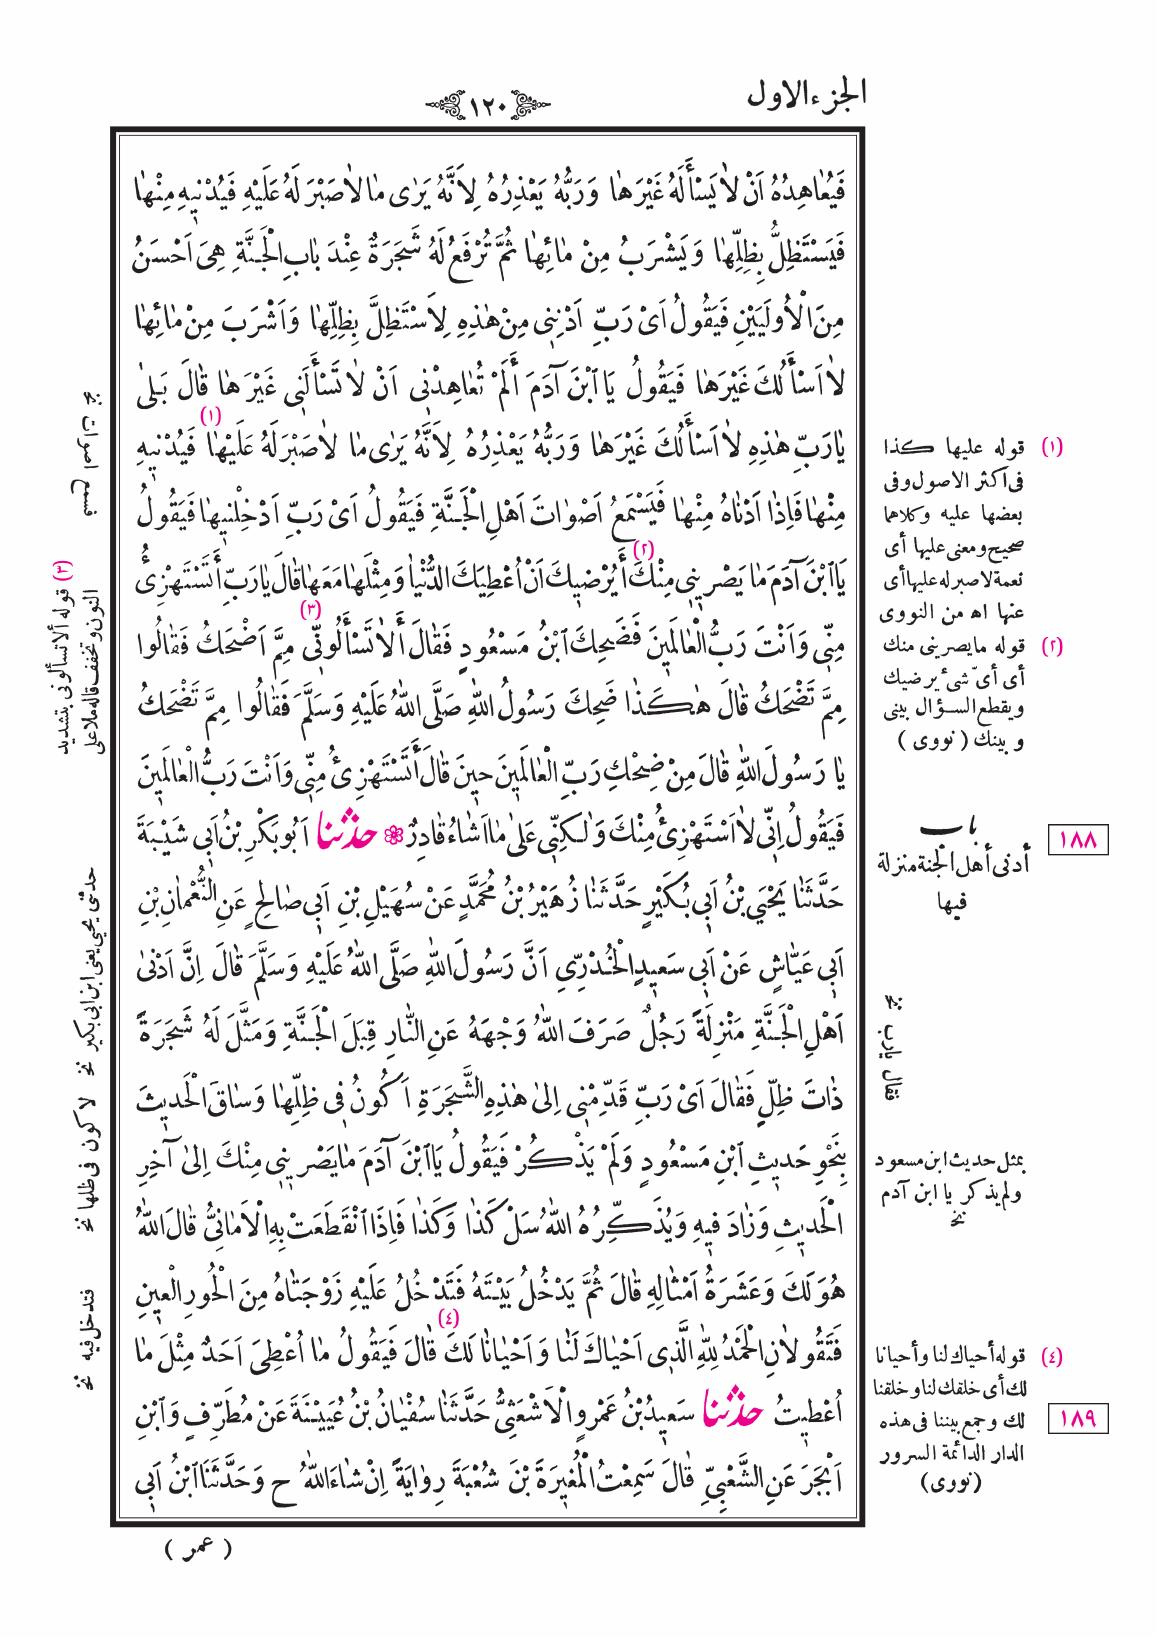 الجزء الاول
١٢٠
فَيُعَاهِدُهُ اَنْ لَا يَسْأَلَهُ غَيْرَهَا وَرَبُّهُ يَعْذِرُهُ لِاَنَّهُ يَرٰى مَا لَا صَبْرَ لَهُ عَلَيْهِ فَيُدْنِيهِ مِنْهَا
فَيَسْتَظِلُّ بِظِلِّهَا وَيَشْرَبُ مِنْ مَائِهَا ثُمَّ تُرْفَعُ لَهُ شَجَرَةٌ عِنْدَ بَابِ الْجَنَّةِ هِيَ اَحْسَنُ
مِنَ الْاُولَيَيْنِ فَيَقُولُ اَىْ رَبِّ اَدْنِنِى مِنْ هٰذِهِ لِاَسْتَظِلَّ بِظِلِّهَا وَاَشْرَبَ مِنْ مَائِهَا
لَا اَسْأَلُكَ غَيْرَهَا فَيَقُولُ يَا ابْنَ آدَمَ أَلَمْ تُعَاهِدْنِى اَنْ لَا تَسْأَلَنِى غَيْرَهَا قَالَ بَلىٰ
يَارَبِّ هٰذِهِ لَا اَسْأَلُكَ غَيْرَهَا وَرَبُّهُ يَعْذِرُهُ لِاَنَّهُ يَرٰى مَا لَا صَبْرَ لَهُ عَلَيْهَا (١) فَيُدْنِيهِ
مِنْهَا فَاِذَا اَدْنَاهُ مِنْهَا فَيَسْمَعُ اَصْوَاتَ اَهْلِ الْجَنَّةِ فَيَقُولُ اَىْ رَبِّ اَدْخِلْنِيهَا فَيَقُولُ
يَا ابْنَ آدَمَ مَا يَصْرِينِى مِنْكَ (٢) أَيُرْضِيكَ اَنْ اُعْطِيَكَ الدُّنْيَا وَمِثْلَهَا مَعَهَا قَالَ يَارَبِّ أَتَسْتَهْزِئُ
مِنِّى وَاَنْتَ رَبُّ الْعَالَمِينَ فَضَحِكَ ابْنُ مَسْعُودٍ فَقَالَ أَلَا تَسْأَلُونِّى (٣) مِمَّ اَضْحَكُ فَقَالُوا
مِمَّ تَضْحَكُ قَالَ هٰكَذَا ضَحِكَ رَسُولُ اللّٰهِ صَلَّى اللّٰهُ عَلَيْهِ وَسَلَّمَ فَقَالُوا مِمَّ تَضْحَكُ
يَا رَسُولَ اللّٰهِ قَالَ مِنْ ضِحْكِ رَبِّ الْعَالَمِينَ حِينَ قَالَ أَتَسْتَهْزِئُ مِنِّى وَاَنْتَ رَبُّ الْعَالَمِينَ
فَيَقُولُ اِنِّى لَا اَسْتَهْزِئُ مِنْكَ وَلٰكِنِّى عَلىٰ مَا اَشَاءُ قَادِرٌ حدثنا اَبُو بَكْرِ بْنُ اَبِى شَيْبَةَ
حَدَّثَنَا يَحْيَى بْنُ اَبِى بُكَيْرٍ حَدَّثَنَا زُهَيْرُ بْنُ مُحَمَّدٍ عَنْ سُهَيْلِ بْنِ اَبِى صَالِحٍ عَنِ النُّعْمَانِ بْنِ
اَبِى عَيَّاشٍ عَنْ اَبِى سَعِيدٍ الْخُدْرِىِّ اَنَّ رَسُولَ اللّٰهِ صَلَّى اللّٰهُ عَلَيْهِ وَسَلَّمَ قَالَ اِنَّ اَدْنىٰ
اَهْلِ الْجَنَّةِ مَنْزِلَةً رَجُلٌ صَرَفَ اللّٰهُ وَجْهَهُ عَنِ النَّارِ قِبَلَ الْجَنَّةِ وَمَثَّلَ لَهُ شَجَرَةً
ذَاتَ ظِلٍّ فَقَالَ اَىْ رَبِّ قَدِّمْنِى اِلىٰ هٰذِهِ الشَّجَرَةِ اَكُونُ فِى ظِلِّهَا وَسَاقَ الْحَدِيثَ
بِنَحْوِ حَدِيثِ ابْنِ مَسْعُودٍ وَلَمْ يَذْكُرْ فَيَقُولُ يَا ابْنَ آدَمَ مَا يَصْرِينِى مِنْكَ اِلىٰ آخِرِ
الْحَدِيثِ وَزَادَ فِيهِ وَيُذَكِّرُهُ اللّٰهُ سَلْ كَذَا وَكَذَا فَاِذَا انْقَطَعَتْ بِهِ الْاَمَانِىُّ قَالَ اللّٰهُ
هُوَ لَكَ وَعَشَرَةُ اَمْثَالِهِ قَالَ ثُمَّ يَدْخُلُ بَيْتَهُ فَتَدْخُلُ عَلَيْهِ زَوْجَتَاهُ مِنَ الْحُورِ الْعِينِ
فَتَقُولَانِ الْحَمْدُ لِلّٰهِ الَّذِى اَحْيَاكَ لَنَا وَاَحْيَانَا لَكَ (٤) قَالَ فَيَقُولُ مَا اُعْطِىَ اَحَدٌ مِثْلَ مَا
اُعْطِيتُ حدثنا سَعِيدُ بْنُ عَمْرٍو الْاَشْعَثِىُّ حَدَّثَنَا سُفْيَانُ بْنُ عُيَيْنَةَ عَنْ مُطَرِّفٍ وَابْنِ
اَبْجَرَ عَنِ الشَّعْبِىِّ قَالَ سَمِعْتُ الْمُغِيرَةَ بْنَ شُعْبَةَ رِوَايَةً اِنْ شَاءَ اللّٰهُ ح وَحَدَّثَنَا ابْنُ اَبِى
( عمر )
(١) قوله عليها كذا
فى أكثر الاصول وفى
بعضها عليه وكلاهما
صحيح ومعنى عليها أى
نعمة لاصبرله عليها أى
عنها اه من النووى
(٢) قوله مايصرينى منك
أى أىّ شىء يرضيك
ويقطع السؤال بينى
وبينك ( نووى )
١٨٨
باب
أدنى أهل الجنة منزلة
فيها
فقال يارب نخ
بمثل حديث ابن مسعود
ولم يذكر يا ابن آدم
نخ
(٤) قوله أحياك لنا وأحيانا
لك أى خلقك لنا وخلقنا
لك وجمع بيننا فى هذه
الدار الدائمة السرور
(نووى)
١٨٩
فيسمع اصوات نخ
(٣) قوله ألاتسألونى بتشديد
النون وتخفف قاله ملا على
حدثنى يحيى يعنى ابن ابى بكير نخ
لاكون فى ظلها نخ
فتدخل فيه نخ